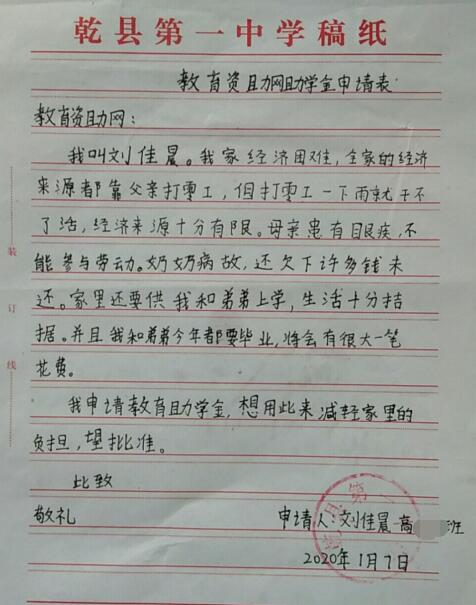 乾县第一中学稿纸
教育资助网助学金申请表
教育资助网：
我叫刘佳晨。我家经济困难，全家的经济
来源都靠父亲打零工，但打零工一下雨就干不
了活，经济来源十分有限。母亲患有目艮疾，不
能参与劳动。奶奶病故，还欠下许多钱未
还。家里还要供我和弟弟上学，生活十分拮
据。并且我和弟弟今年都要毕业，将会有很大一笔
花费。
我申请教育助学金，想用此来减轻家里的
负担，望批准。
此致
敬礼
申请人：刘佳晨 高 班
2020年1月7日
装
订
线